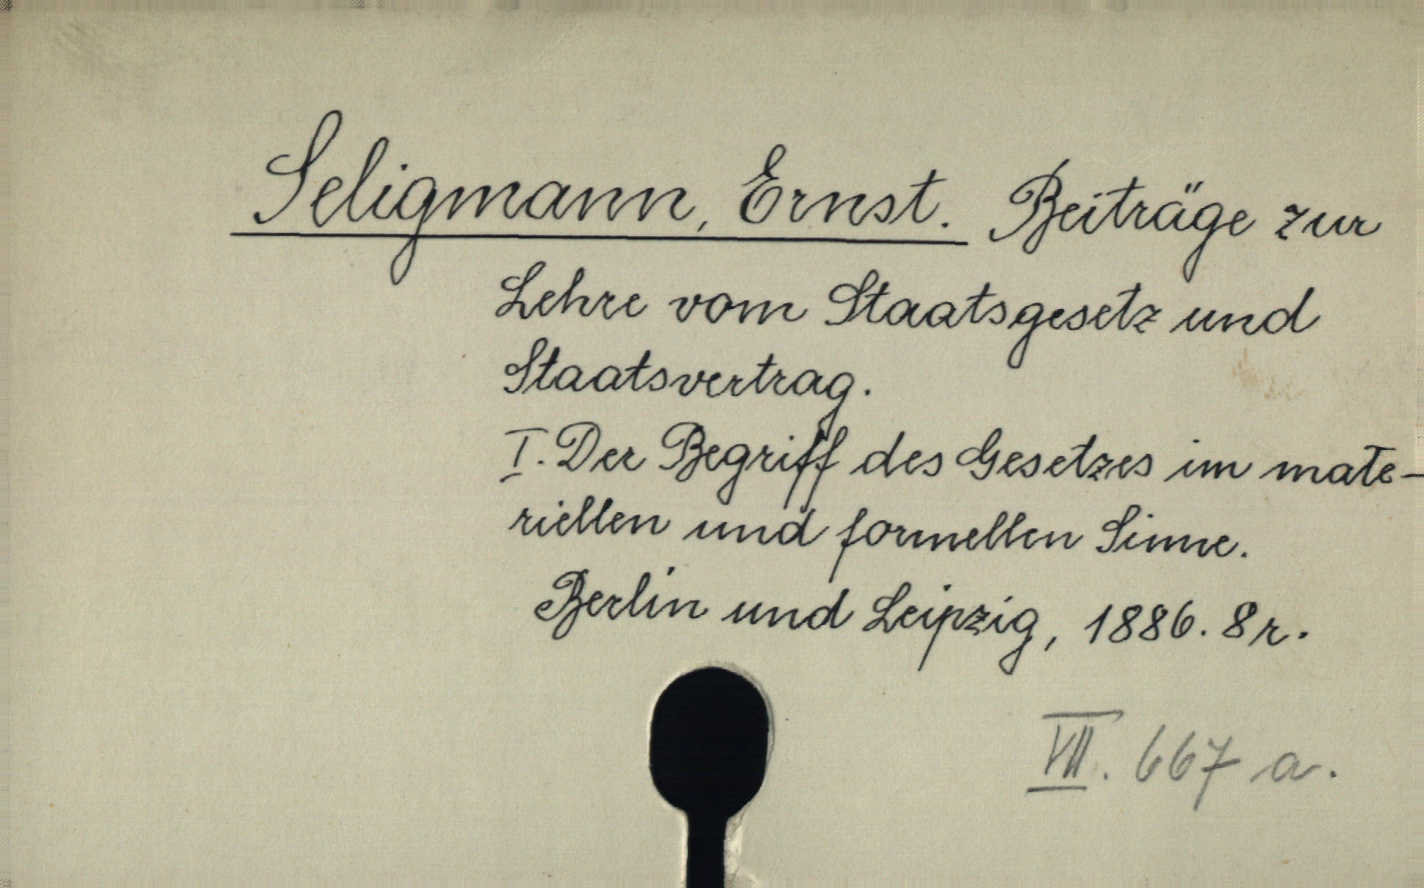 Seligmann, Ernst. Beiträge zur
Lehre vom Staatsgesetz und
Staatsvertrag.
I. Der Begriff des Gesetzes im mate-
riellen und formellen Sinne.
Berlin und Leipzig, 1886. 8r.
VII. 667 a.